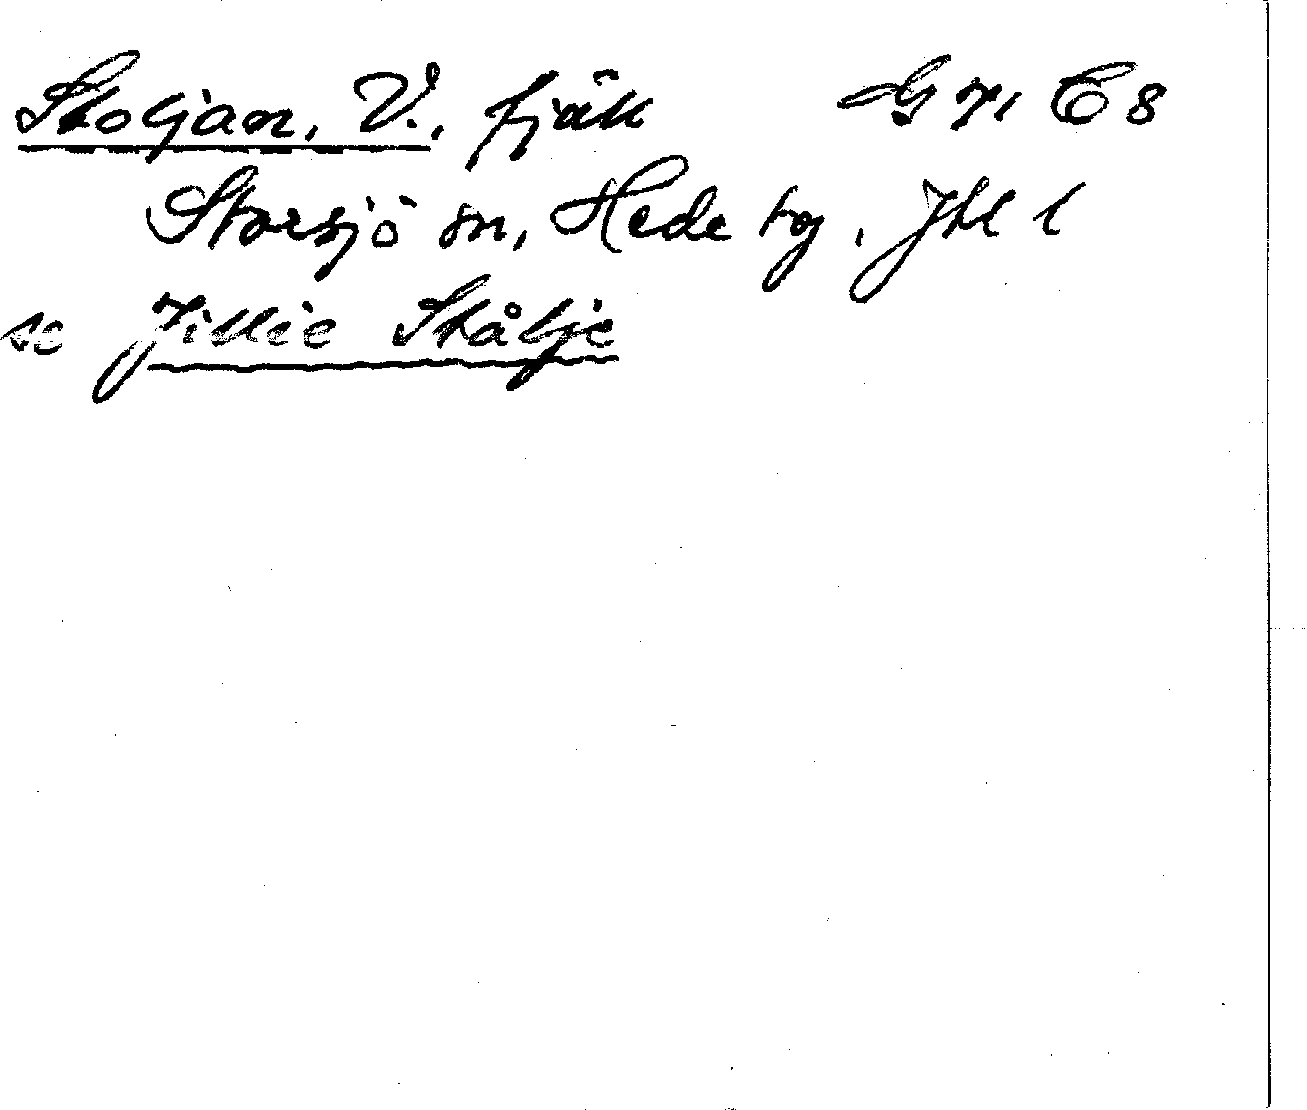 Skoljan, V., fjäll Gvn C8
Storsjö sn, Hede tg, Jtl l
se Jillie Skålje